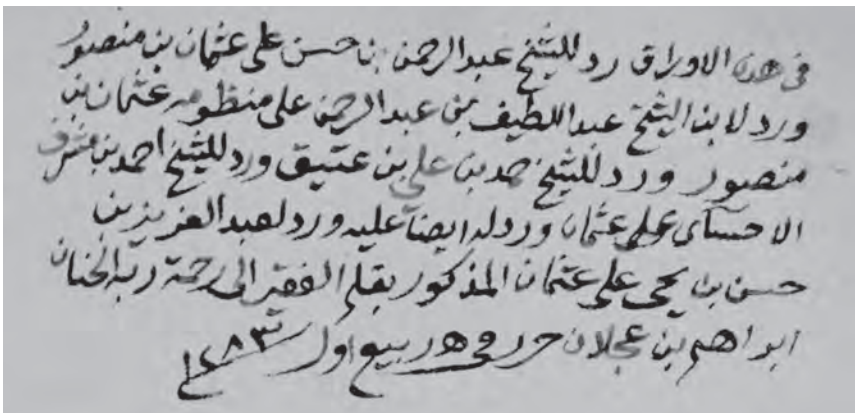 في هذه الاوراق رد للشيخ عبدالرحمن بن حسن على عثمان بن منصور
ورد لابنه الشيخ عبد اللطيف بن عبدالرحمن على منظومه عثمان بن
منصور ورد للشيخ حمد بن علي بن عتيق ورد للشيخ احمد بن مشرف
الاحسائي على عثمان ورد له ايضا عليه ورد لعبد العزيز بن
حسن بن يحي على عثمان المذكور بقلم الفقير الى رحمة ربه الحنان
ابراهيم بن عجلان حرر في ٥ ربيع اول ١٢٨٣